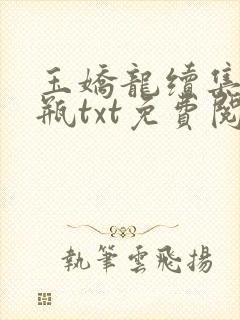 玉嬌龍續集
瓶txt免費閱
執筆雲飛揚